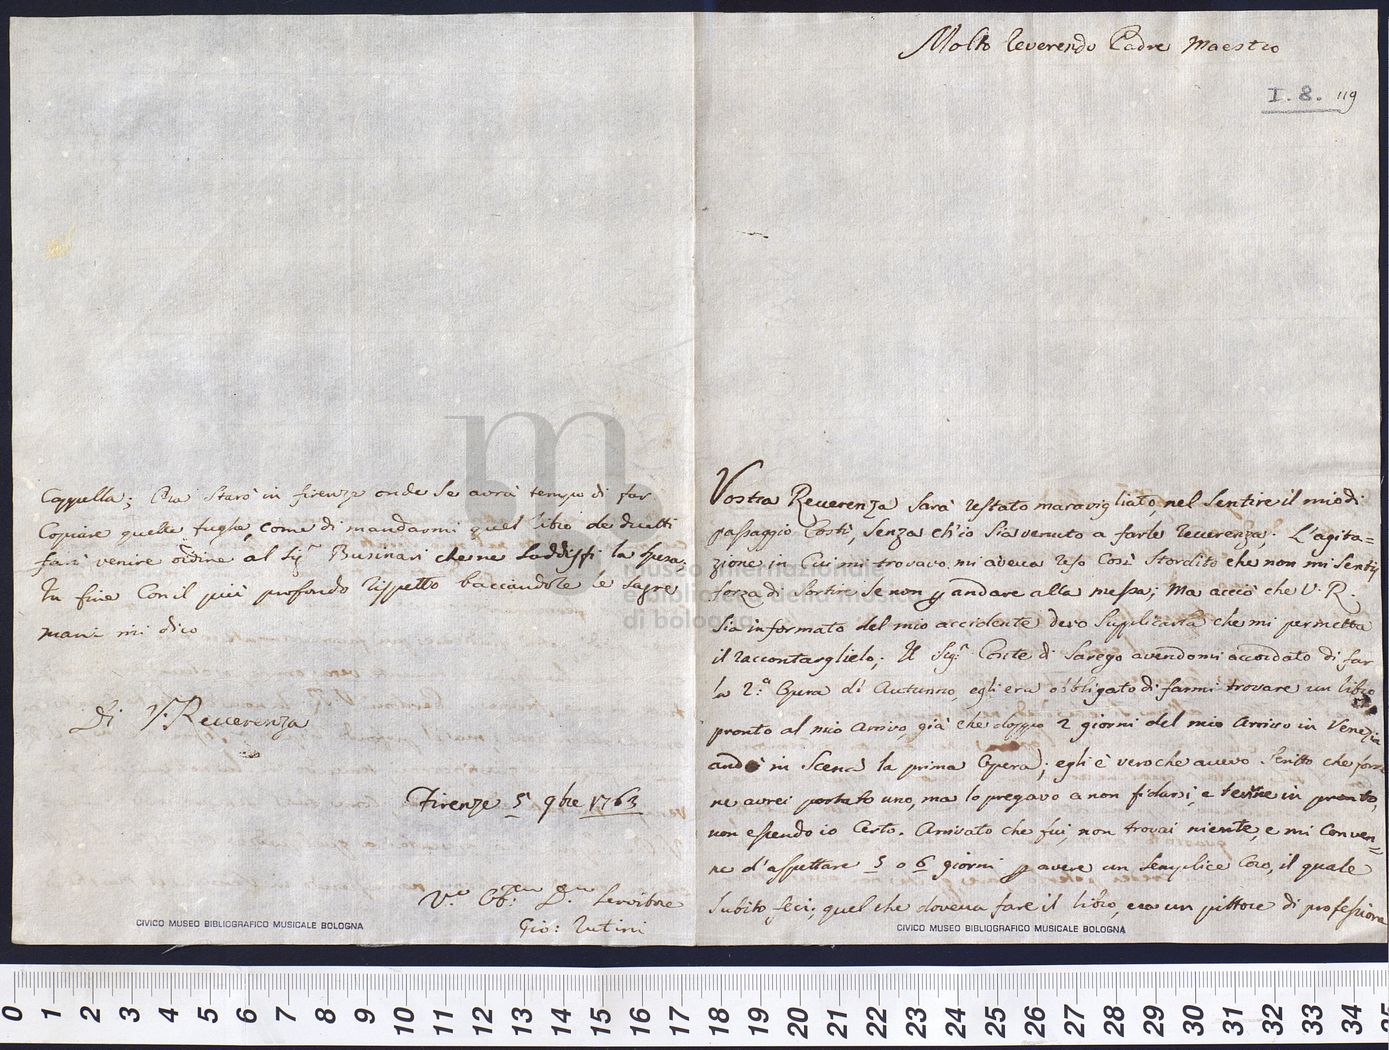 Molto Reverendo Padre Maestro
I. 8. 119
Vostra Reverenza sarà restato maravigliato, nel sentire il mio di
passaggio Costì, senza ch'io sia venuto a farle reverenza. L'agita=
zione in Cui mi trovavo, mi aveva reso Così stordito che non mi sentij
forza di sortire se non p andare alla messa; Ma acciò che V. R.
sia informato del mio accidente devo supplicarla che mi permetta
il raccontarglielo; Il Sig.r Conte di Sarego avendomi accordato di far
la 2.a Opera di Autunno, egli era obbligato di farmi trovare un libro
pronto al mio Arrivo, già che doppo 2 giorni del mio Arrivo in Venezia
andò in Scena la prima Opera; egli è vero che avevo scritto che forse
ne avrei portato uno, ma lo pregavo a non fidarsi, e tenne in pronto,
non essendo io Certo. Arrivato che fui, non trovai niente, e mi Conven=
ne d'aspettare 5 o 6 giorni p avere un semplice Coro, il quale
subito feci; quel che doveva fare il libro, era un pittore di professione
Cappella; Qui starò in firenze onde se avrà tempo di far
Copiare quelle fughe, come di mandarmi quel libro de duetti
farò venire ordine al Sig.r Businari che ne soddisfi la spesa;
In fine Con il più profondo rispetto bacciandole le sagre
mani mi dico
Di V. Reverenza
Firenze 5 9bre 1763
V.o Obb: D. Servitore
Gio: Rutini
CIVICO MUSEO BIBLIOGRAFICO MUSICALE BOLOGNA
CIVICO MUSEO BIBLIOGRAFICO MUSICALE BOLOGNA
museo internazionale
e biblioteca della musica
di bologna
0 1 2 3 4 5 6 7 8 9 10 11 12 13 14 15 16 17 18 19 20 21 22 23 24 25 26 27 28 29 30 31 32 33 34 35